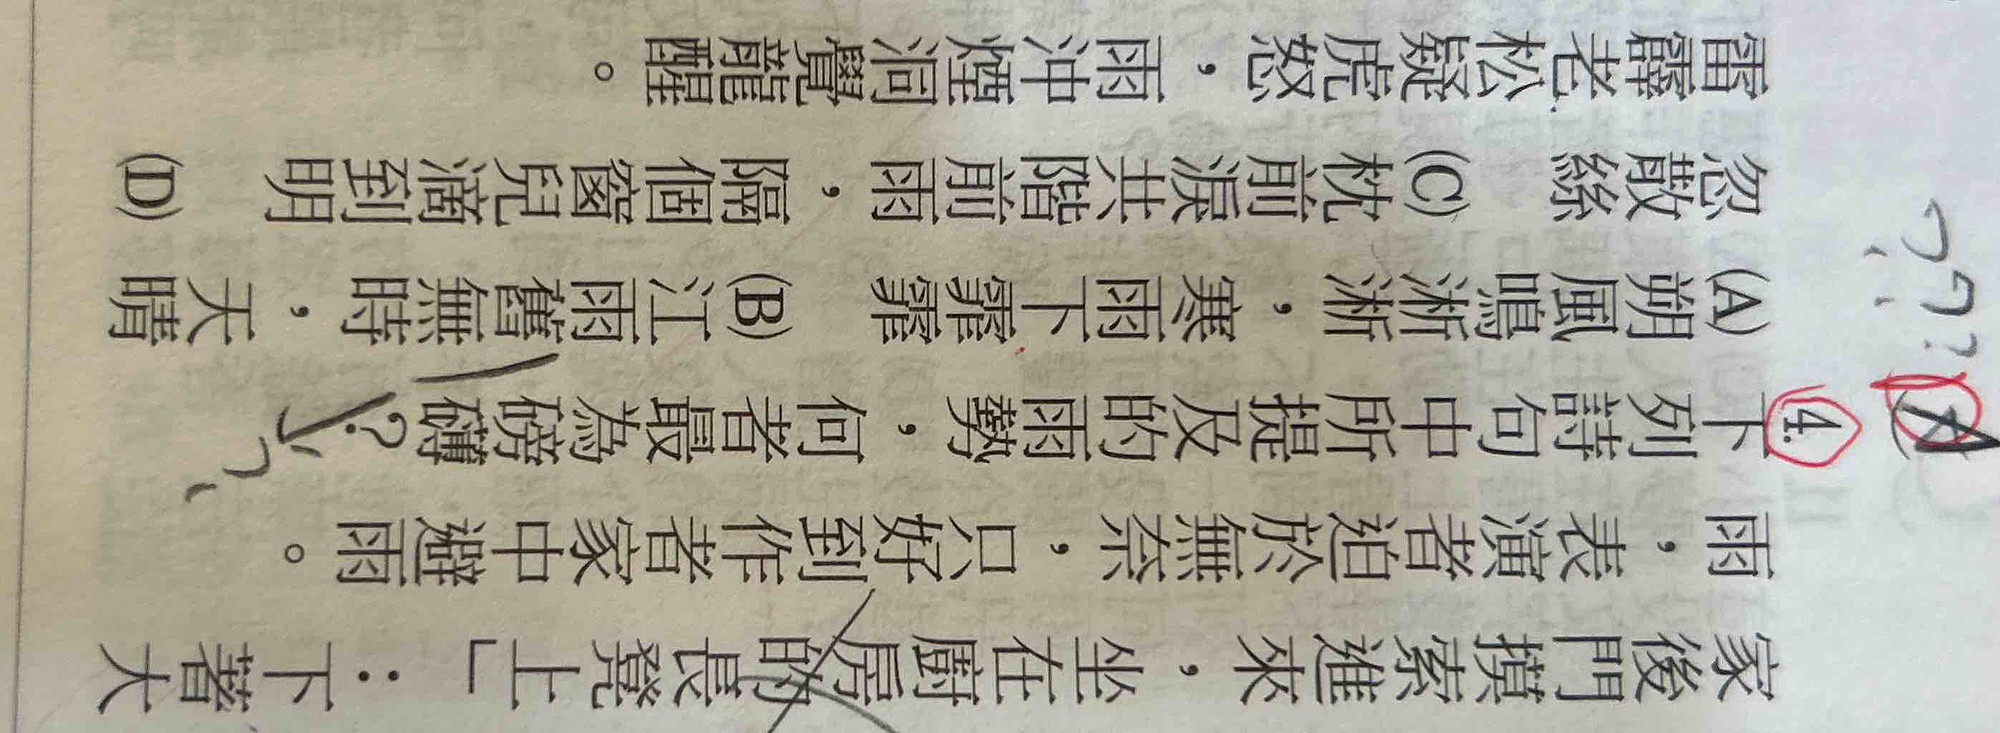 家後門摸索進來，坐在廚房的長凳上」：下著大
雨，表演者迫於無奈，只好到作者家中避雨。
4.下列詩句中所提及的雨勢，何者最為磅礴？
(A)朔風鳴淅淅，寒雨下霏霏 (B)江雨舊無時，天晴
忽散絲 (C)枕前淚共階前雨，隔個窗兒滴到明 (D)
雷霹老松疑虎怒，雨沖煙洞覺龍醒。